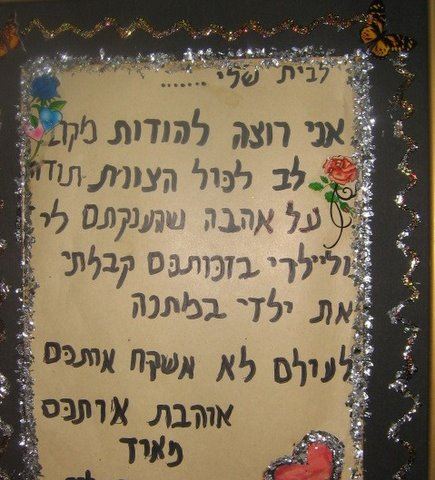 לבית שלי .......
אני רוצה להודות מקרב
לב לכול הצוות תודה
על אהבה שהענקתם לי
ולילדי בזכותכם קבלתי
את ילדי במתנה
לעולם לא אשקח אותכם
אוהבת אותכם
מאוד